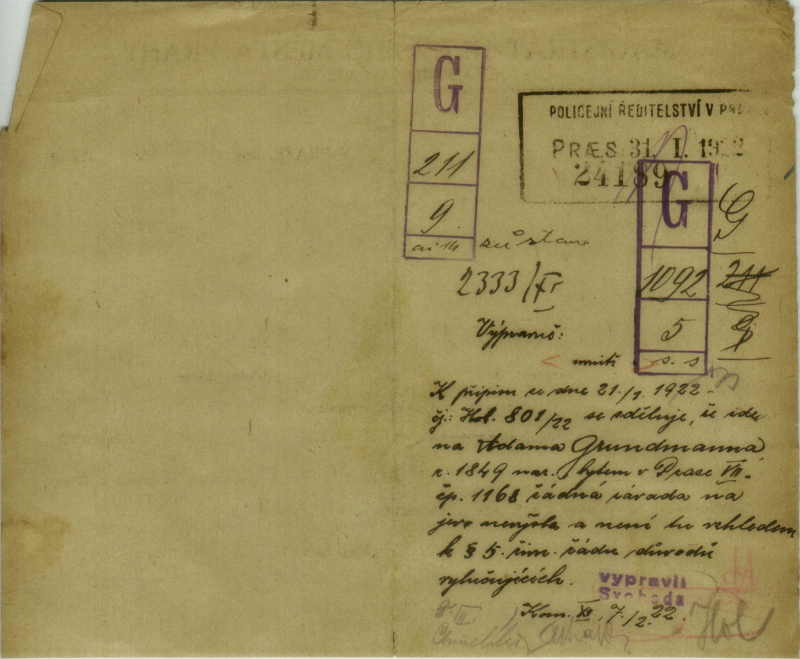 G
211
9
ai 14
POLICEJNÍ ŘEDITELSTVÍ V
PRÆS 31. I. 1922
24189
G
1092
5
s. s
G
211
9
zůstane
2333/XI
Výpravně:
K přípisu ze dne 21./1 1922
čj.: Hol. 801/22 se sděluje, že zde
na Adama Grundmanna
r. 1849 nar. bytem v Praze VII.
čp. 1168 žádná závada na
jevo nevyšla a není tu vzhledem
k § 5. žim. řádu důvodů
vylučujících.
vypravil
Svoboda
Kom. XI, 7./2. 22.